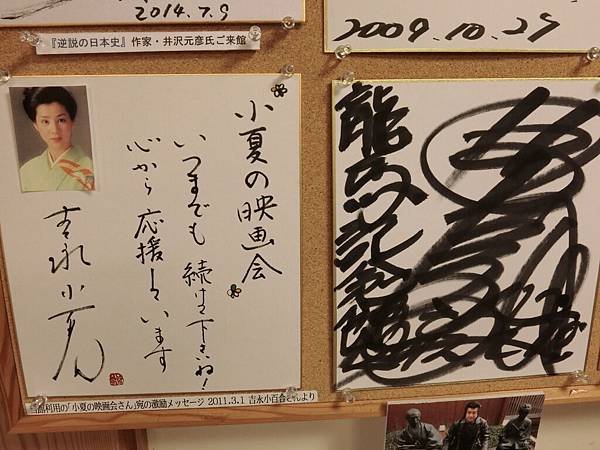 2014.7.9
『逆説の日本史』作家・井沢元彦氏ご来館
小夏の映画会
いつまでも 続けて下さいね!
心から 応援しています
吉永小百合
当館利用の「小夏の映画会さん」宛の激励メッセージ 2011.3.1 吉永小百合さんより
2009.10.27
龍馬記念館